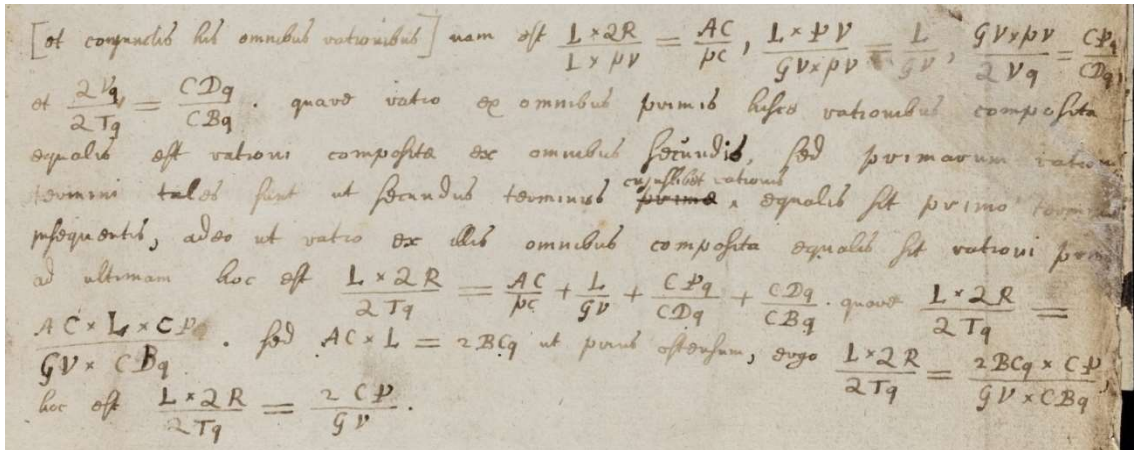 [et conjunctis his omnibus rationibus] nam est L × QR / L × pv = AC / pc, L × PV / GV × pv = L / GV, GV × pv / QVq = CPq / CDq,
et QVq / QTq = CDq / CBq. quare ratio ex omnibus primis hisce rationibus composita
equalis est rationi composite ex omnibus secundis, sed primarum rationum
termini tales sunt ut secundus terminus cujuslibet rationis equalis sit primo termino
insequentis, adeo ut ratio ex illis omnibus composita equalis sit rationi primi
ad ultimam hoc est L × QR / QTq = AC / pc + L / GV + CPq / CDq + CDq / CBq. quare L × QR / QTq =
AC × L × CP / GV × CBq. sed AC × L = 2BCq ut prius ostensum, ergo L × QR / QTq = 2BCq × CP / GV × CBq,
hoc est L × QR / QTq = 2CP / GV.